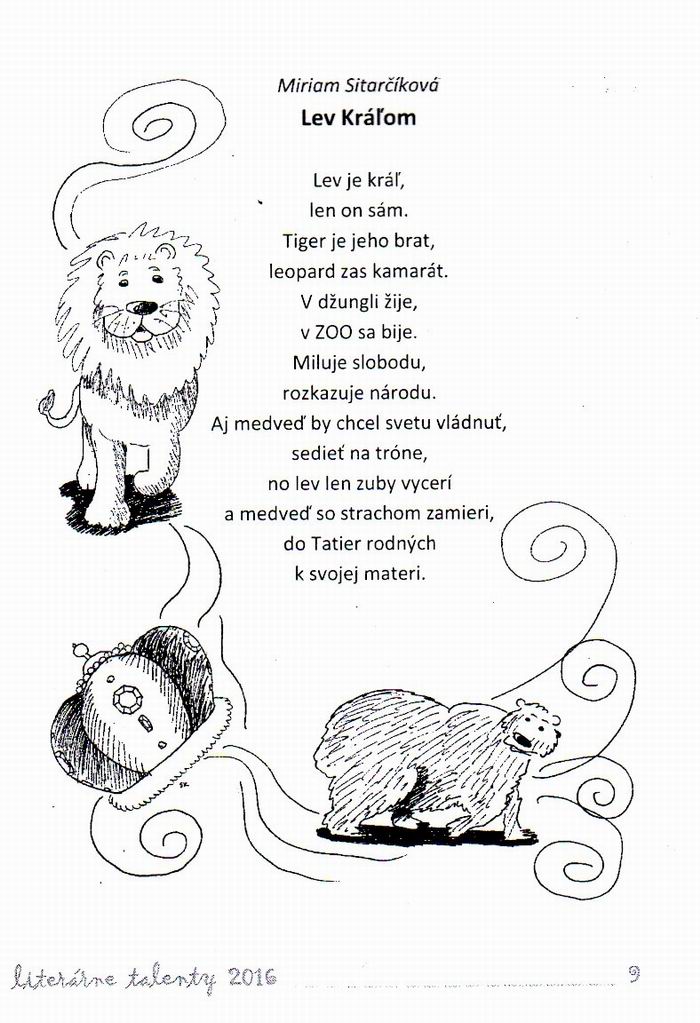 Miriam Sitarčíková
Lev Kráľom
Lev je kráľ,
len on sám.
Tiger je jeho brat,
leopard zas kamarát.
V džungli žije,
v ZOO sa bije.
Miluje slobodu,
rozkazuje národu.
Aj medveď by chcel svetu vládnuť,
sedieť na tróne,
no lev len zuby vycerí
a medveď so strachom zamieri,
do Tatier rodných
k svojej materi.
SK
literárne talenty 2016
9